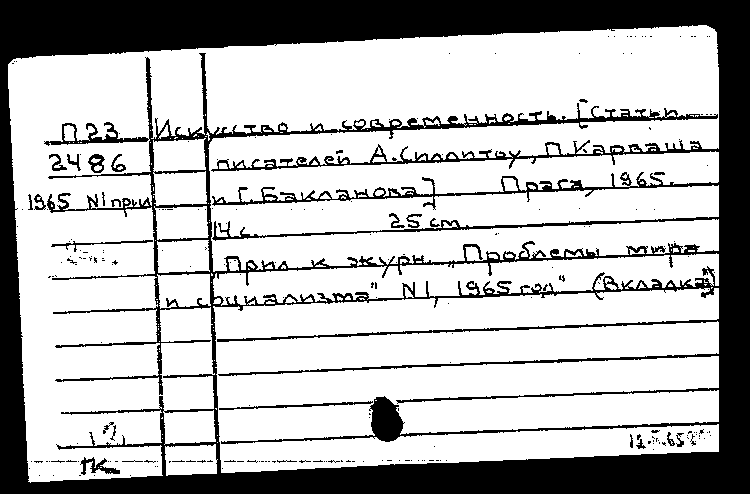 П23 Искусство и современность. [Статьи
2486 писателей А.Силлитоу, П.Карваша
1965 N1 прил и Г. Бакланова] Прага, 1965.
14 с. 25 см.
"Прил к журн. "Проблемы мира
и социализма" N1, 1965 год" (Вкладка)
2
ПК